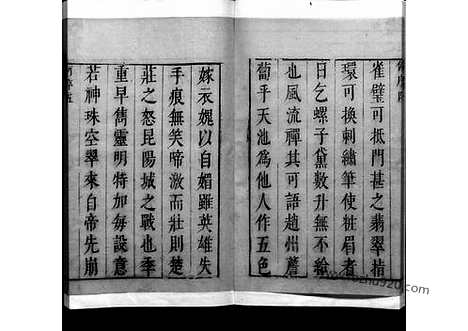 雀璧可抵門甚之翡翠指
環可換刺繡筆使粧眉者
日乞螺子黛數升無不給
也風流禪其可語趙州薝
蔔乎天池為他人作五色
嫁衣媿以自媚雖英雄失
手痕無笑啼激而壯則楚
莊之怒昆陽城之戰也季
重早雋靈明特加每設意
若神珠空翠來白帝先崩